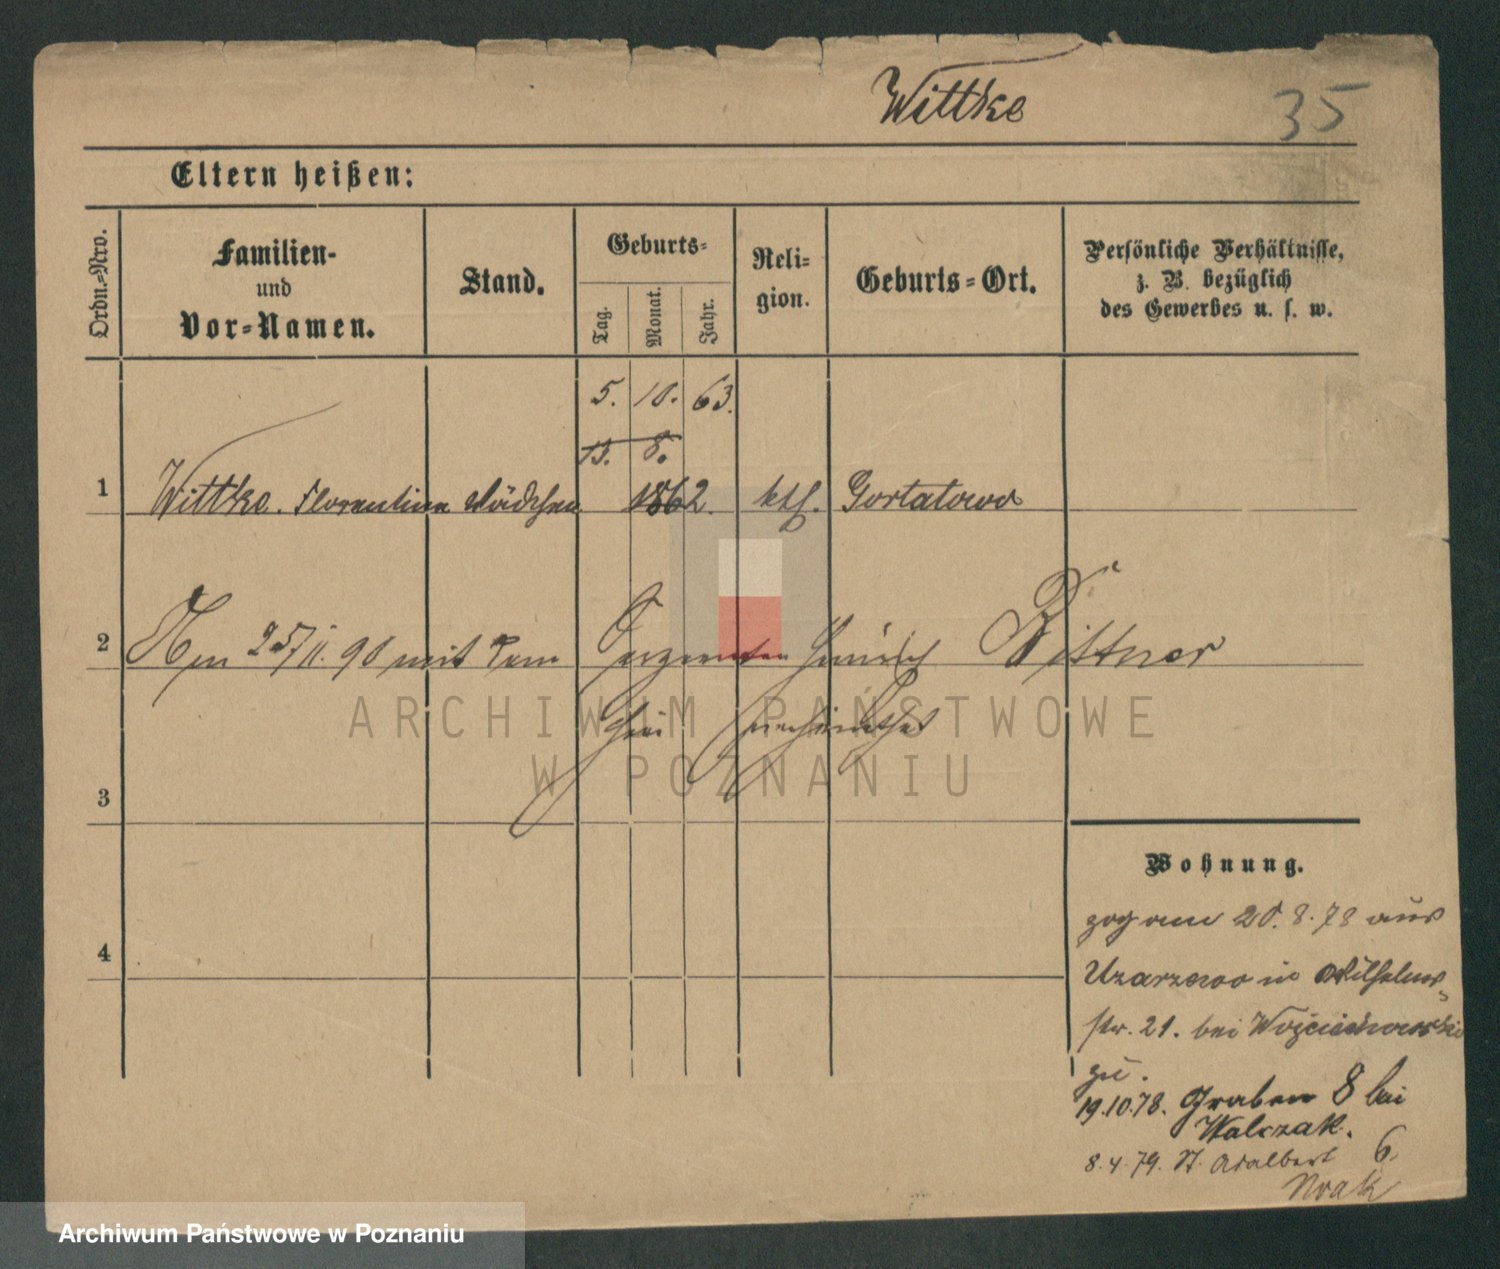 Wittke 35
Eltern heißen:
Ordn.-Nro.
Familien-
und
Vor-Namen.
Stand.
Geburts-
Tag.
Monat.
Jahr.
Reli-
gion.
Geburts-Ort.
Persönliche Verhältnisse,
z. B. bezüglich
des Gewerbes u. s. w.
5. 10. 63.
13. 8.
1 Wittke. Florentine Mädchen 1862. kth. Gortatowo
2 Am 25/11. 90 mit dem Sergeanten Heinrich Bittner
hier verheirathet
3
ARCHIWUM PAŃSTWOWE
W POZNANIU
4
Wohnung.
zog am 20. 8. 78 aus
Uzarzewo in Wilhelms-
str. 21. bei Wojciechowski
zu.
19.10.78. Graben 8 bei
Walczak.
8. 4. 79. St. Adalbert 6.
Noak
Archiwum Państwowe w Poznaniu